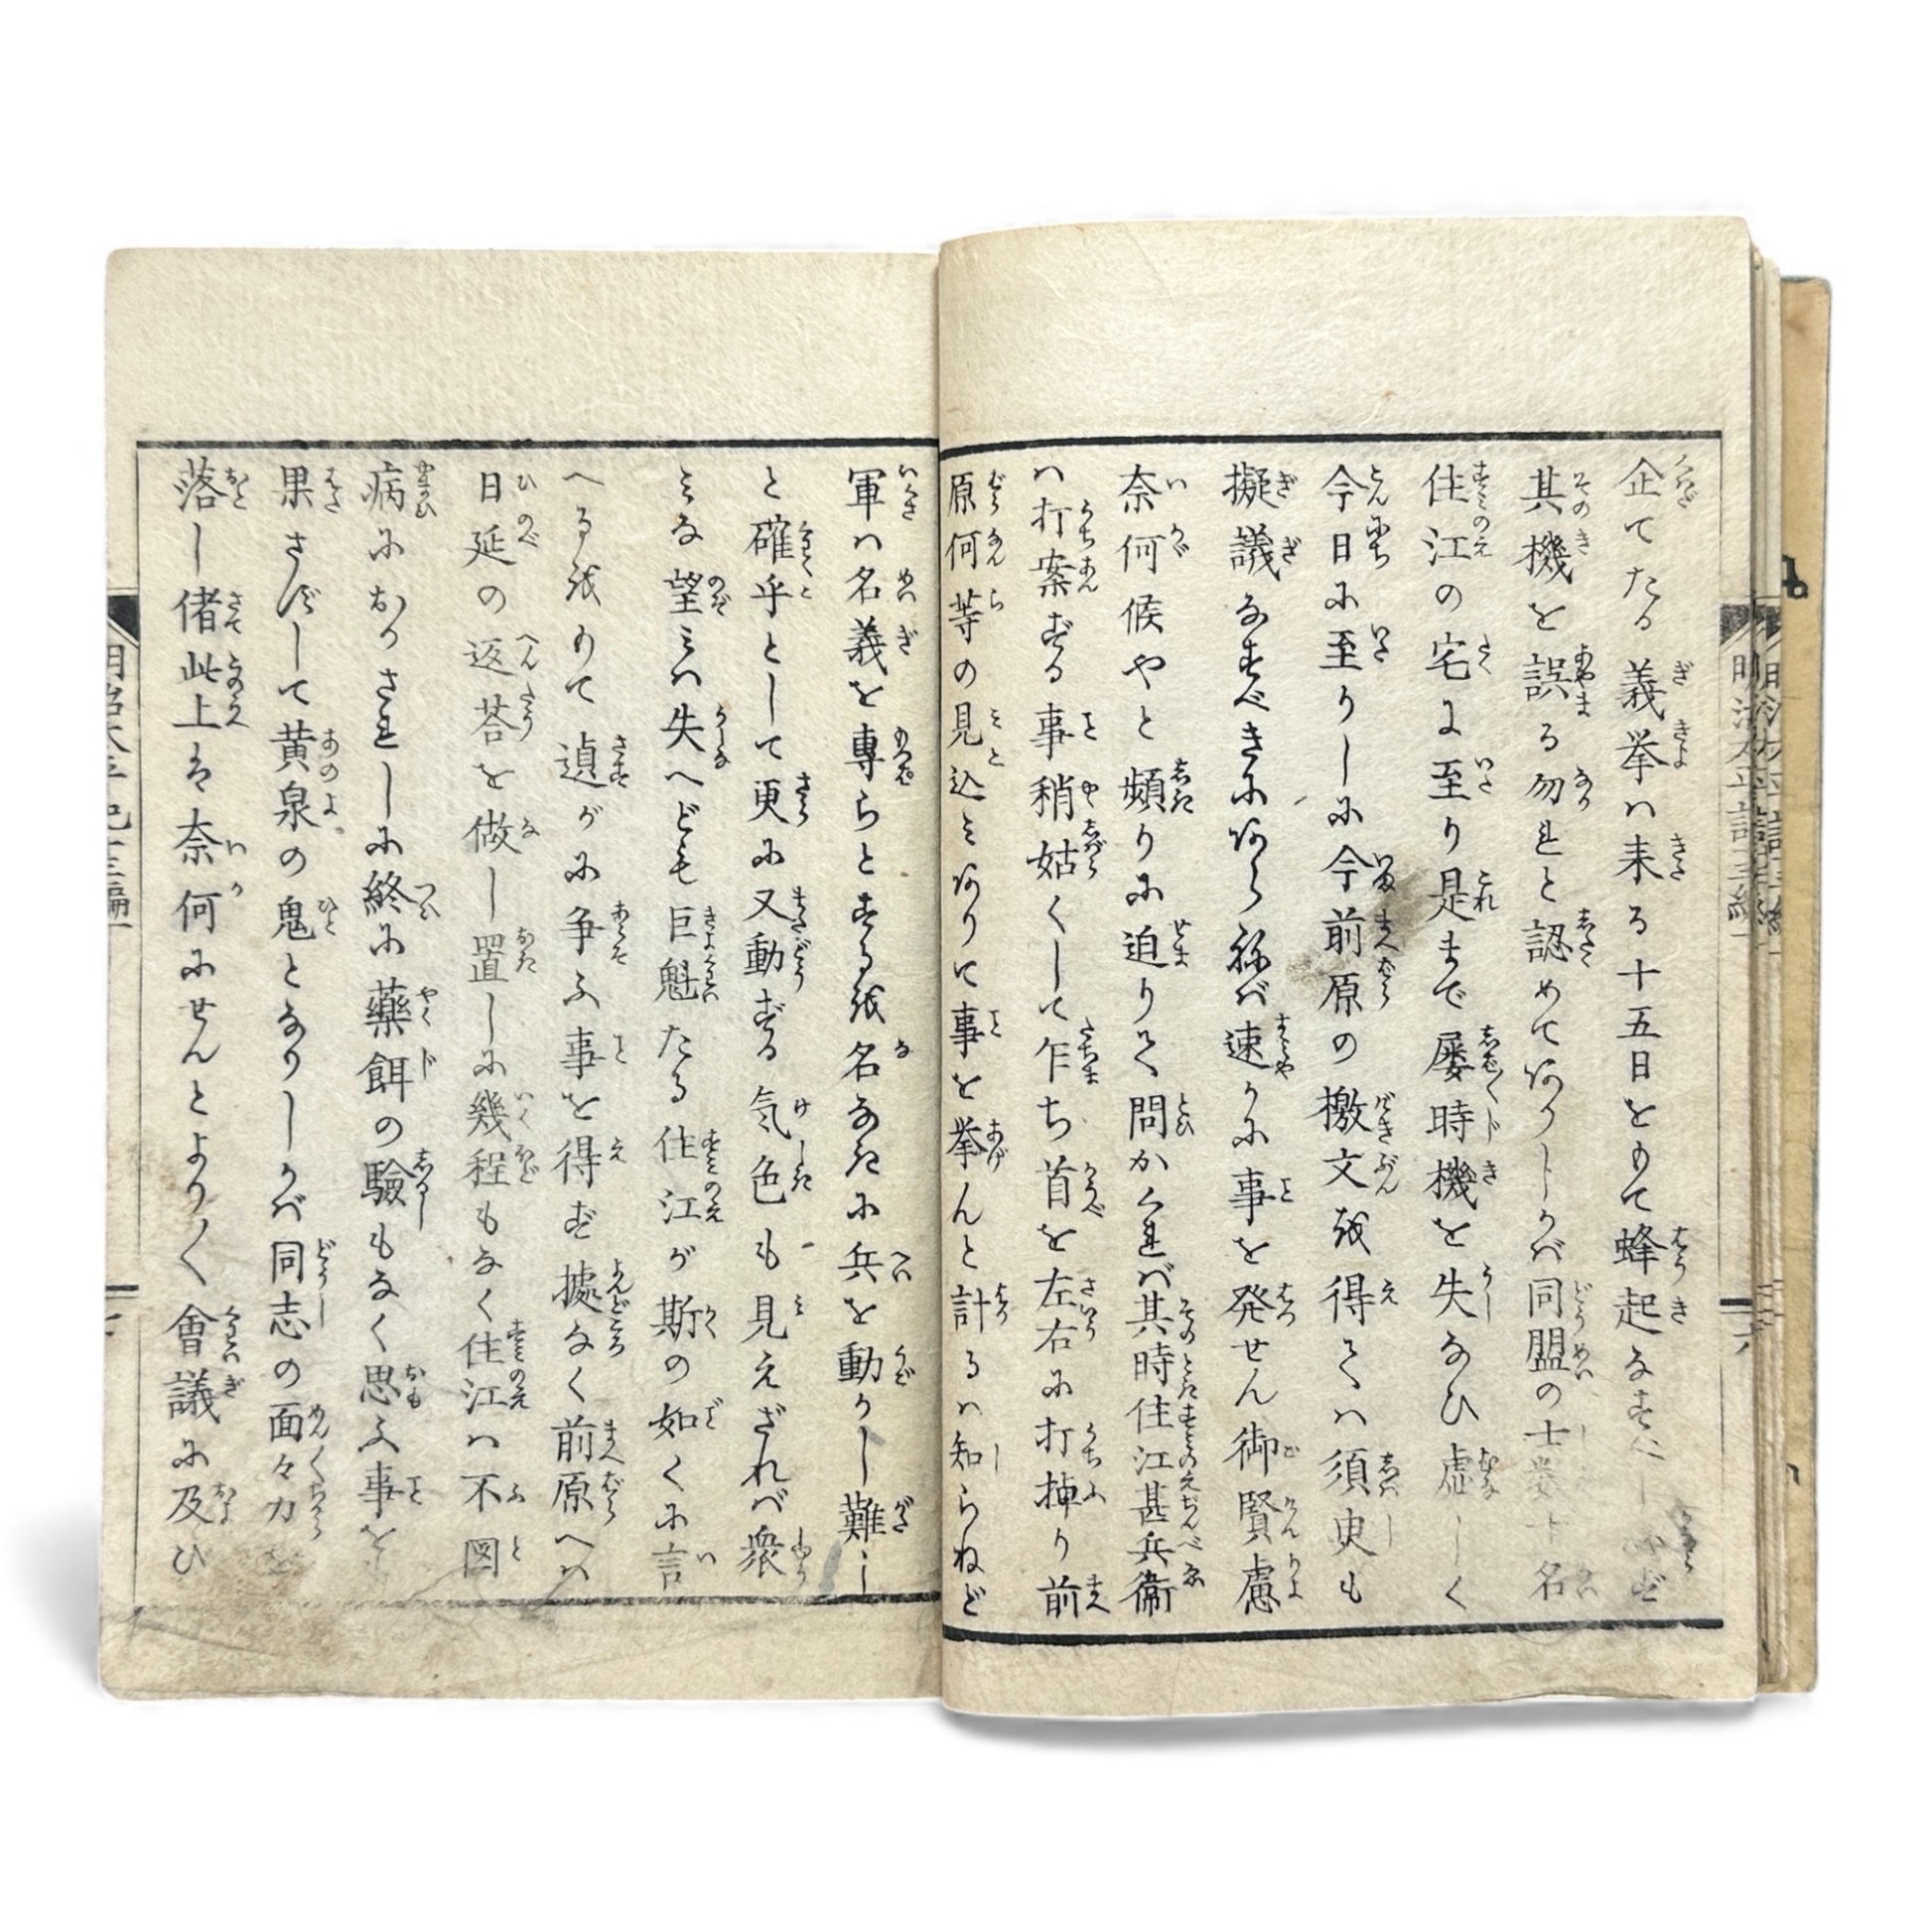 企てたる義挙ハ来る十五日をもて蜂起なすべし
其機を誤る勿れと認めてありしかバ同盟の士
住江の宅に至り是まで屡時機を失なひ虚しく
今日に至りしに今前原の檄文を得てハ須臾も
擬議なすべきにあらねバ速かに事を発せん御賢慮
奈何候やと頻りに迫りて問かくれバ其時住江甚兵衛
ハ打案ずる事稍姑くして乍ち首を左右に打掉り前
原何等の見込ミありて事を挙んと計るハ知らねど
軍ハ名義を専らとするを名なきに兵を動かし難し
と確乎として更に又動ずる気色も見えざれバ衆
ミな望ミハ失へども巨魁たる住江が斯の如くに言
へるをもて遉が に争ふ事を得ず據なく前原へハ
日延の返荅を做し置しに幾程もなく住江ハ不図
病におかされしに終に藥餌の驗もなく思ふ事を
果さずして黄泉の鬼となりしかバ同志の面々力
落し偖此上は奈何にせんとより〱會議に及び
明治太平記三編